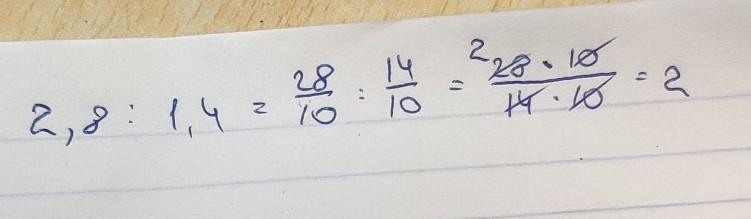 2,8 : 1,4 = 28/10 : 14/10 = ²28 · 10/14 · 10 = 2